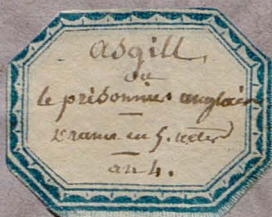 asgill
ou
le prisonnier anglais
Drame en 5. actes
an 4.